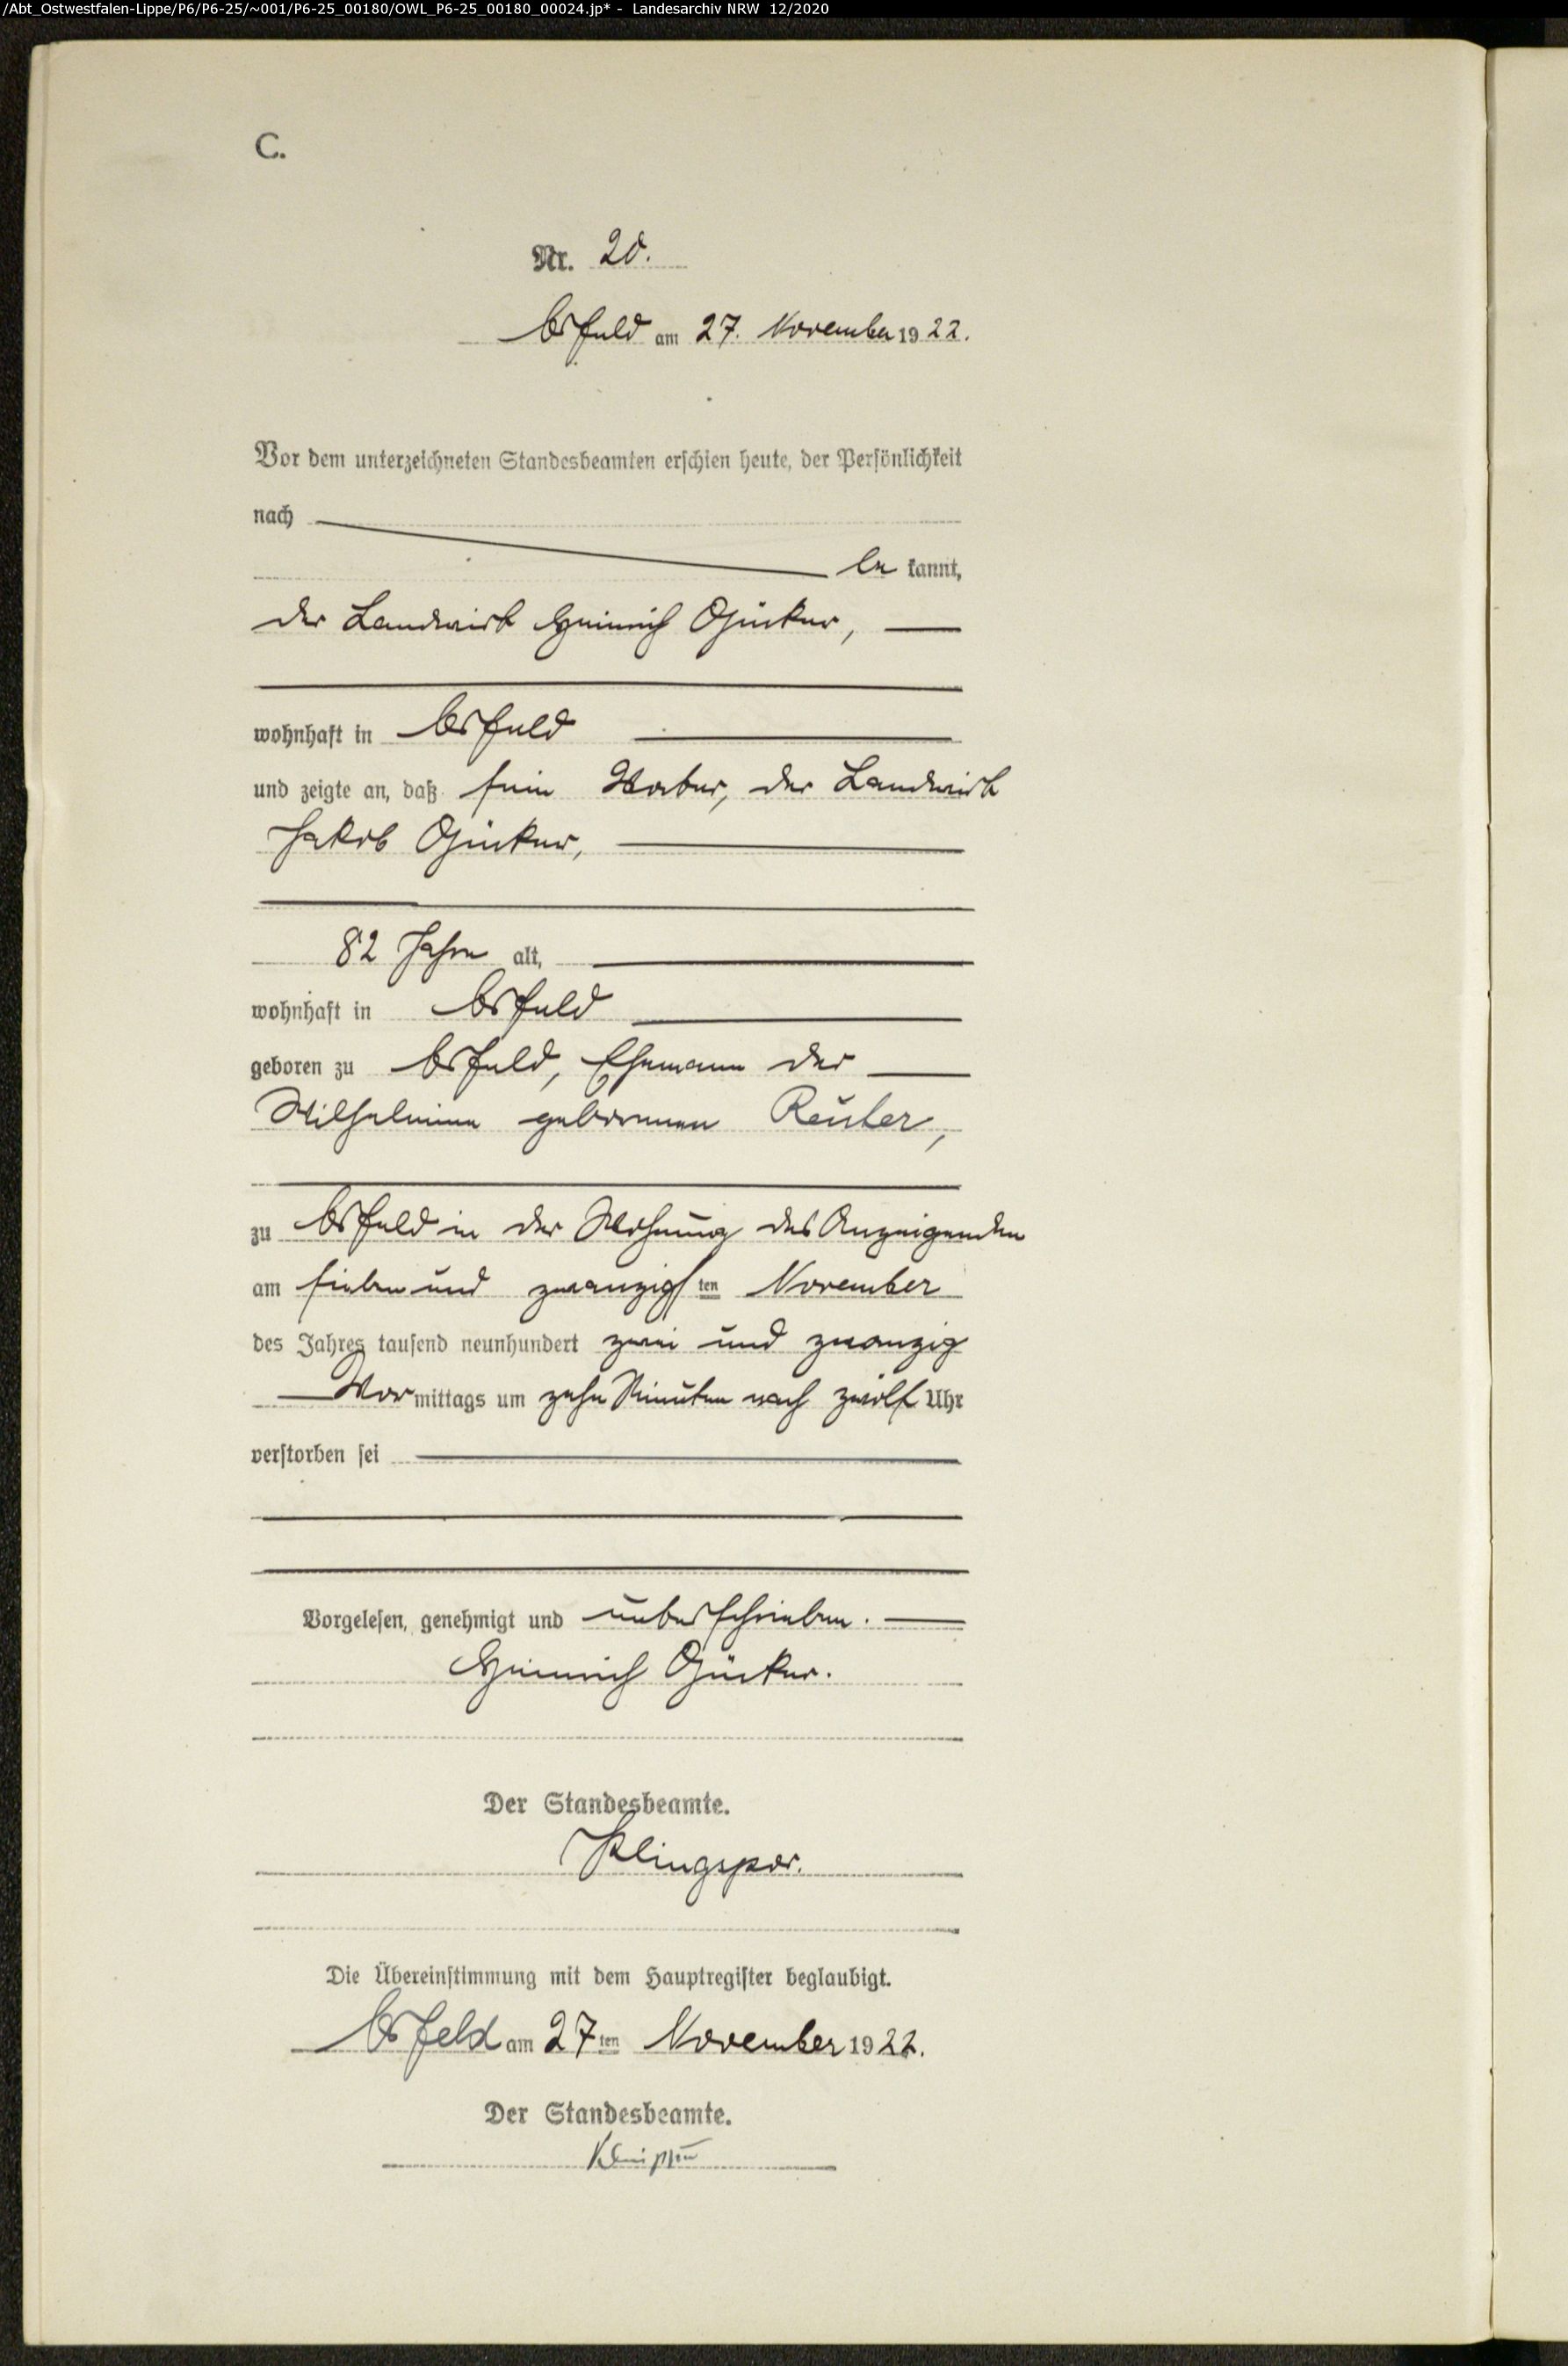 /Abt_Ostwestfalen-Lippe/P6/P6-25/~001/P6-25_00180/OWL_P6-25_00180_00024.jp* - Landesarchiv NRW 12/2020
C.
Nr. 20.
Arfeld am 27. November 1922.
Vor dem unterzeichneten Standesbeamten erschien heute, der Persönlichkeit
nach
be kannt,
der Landwirt Heinrich Gücker,
wohnhaft in Arfeld
und zeigte an, daß sein Vater, der Landwirt
Jakob Gücker,
82 Jahre alt,
wohnhaft in Arfeld
geboren zu Arfeld, Ehemann der
Wilhelmine geborenen Reuter,
zu Arfeld in der Wohnung des Anzeigenden
am sieben und zwanzigsten November
des Jahres tausend neunhundert zwei und zwanzig
Vormittags um zehn Minuten nach zwölf Uhr
verstorben sei
Vorgelesen, genehmigt und unterschrieben.
Heinrich Gücker.
Der Standesbeamte.
Klingspor.
Die Übereinstimmung mit dem Hauptregister beglaubigt.
Arfeld am 27ten November 1922.
Der Standesbeamte.